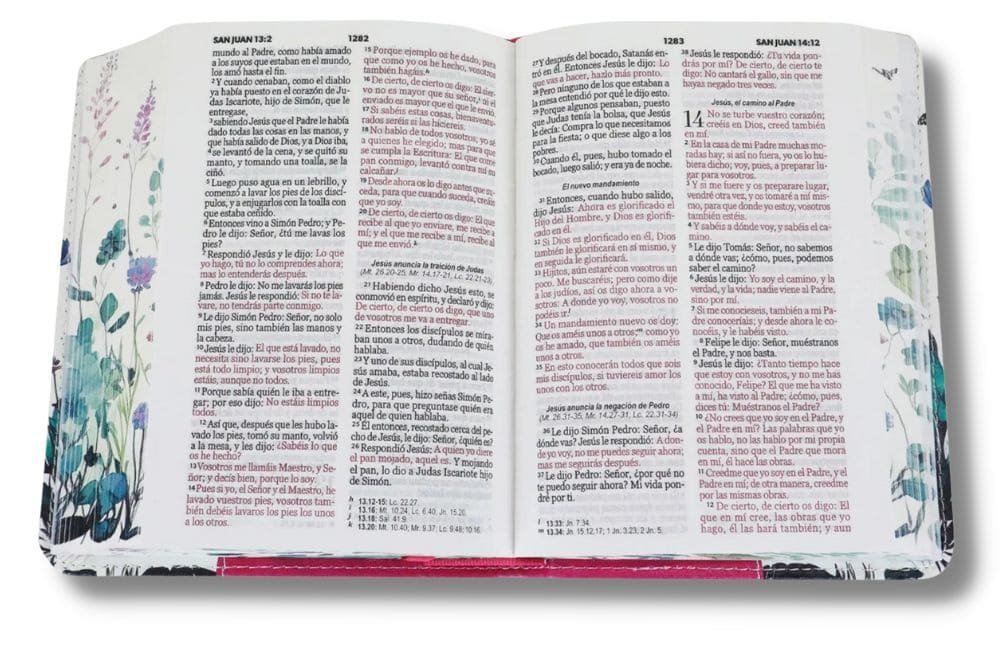 SAN JUAN 13:2
1282
mundo al Padre, como había amado
a los suyos que estaban en el mundo,
los amó hasta el fin.
2 Y cuando cenaban, como el diablo
ya había puesto en el corazón de Ju-
das Iscariote, hijo de Simón, que le
entregase,
3 sabiendo Jesús que el Padre le había
dado todas las cosas en las manos, y
que había salido de Dios, y a Dios iba,
4 se levantó de la cena, y se quitó su
manto, y tomando una toalla, se la
ciñó.
5 Luego puso agua en un lebrillo, y
comenzó a lavar los pies de los discí-
pulos, y a enjugarlos con la toalla con
que estaba ceñido.
6 Entonces vino a Simón Pedro; y Pe-
dro le dijo: Señor, ¿tú me lavas los
pies?
7 Respondió Jesús y le dijo: Lo que
yo hago, tú no lo comprendes ahora;
mas lo entenderás después.
8 Pedro le dijo: No me lavarás los pies
jamás. Jesús le respondió: Si no te la-
vare, no tendrás parte conmigo.
9 Le dijo Simón Pedro: Señor, no solo
mis pies, sino también las manos y
la cabeza.
10 Jesús le dijo: El que está lavado, no
necesita sino lavarse los pies, pues
está todo limpio; y vosotros limpios
estáis, aunque no todos.
11 Porque sabía quién le iba a entre-
gar; por eso dijo: No estáis limpios
todos.
12 Así que, después que les hubo la-
vado los pies, tomó su manto, volvió
a la mesa, y les dijo: ¿Sabéis lo que
os he hecho?
13 Vosotros me llamáis Maestro, y Se-
ñor; y decís bien, porque lo soy.
14 Pues si yo, el Señor y el Maestro, he
lavado vuestros pies, vosotros tam-
bién debéis lavaros los pies los unos
a los otros.
15 Porque ejemplo os he dado, para
que como yo os he hecho, vosotros
también hagáis.h
16 De cierto, de cierto os digo: El sier-
vo no es mayor que su señor,i ni el
enviado es mayor que el que le envió.
17 Si sabéis estas cosas, bienaventu-
rados seréis si las hiciereis.
18 No hablo de todos vosotros; yo sé
a quienes he elegido; mas para que
se cumpla la Escritura: El que come
pan conmigo, levantó contra mí su
calcañar.j
19 Desde ahora os lo digo antes que su-
ceda, para que cuando suceda, creáis
que yo soy.
20 De cierto, de cierto os digo: El que
recibe al que yo enviare, me recibe a
mí; y el que me recibe a mí, recibe al
que me envió.k
Jesús anuncia la traición de Judas
(Mt. 26.20-25; Mr. 14.17-21; Lc. 22.21-23)
21 Habiendo dicho Jesús esto, se
conmovió en espíritu, y declaró y dijo:
De cierto, de cierto os digo, que uno
de vosotros me va a entregar.
22 Entonces los discípulos se mira-
ban unos a otros, dudando de quién
hablaba.
23 Y uno de sus discípulos, al cual Je-
sús amaba, estaba recostado al lado
de Jesús.
24 A este, pues, hizo señas Simón Pe-
dro, para que preguntase quién era
aquel de quien hablaba.
25 Él entonces, recostado cerca del pe-
cho de Jesús, le dijo: Señor, ¿quién es?
26 Respondió Jesús: A quien yo diere
el pan mojado, aquel es. Y mojando
el pan, lo dio a Judas Iscariote hijo
de Simón.
h 13.12-15: Lc. 22.27.
i 13.16: Mt. 10.24, Lc. 6.40, Jn. 15.20.
j 13.18: Sal. 41.9.
k 13.20: Mt. 10.40; Mr. 9.37; Lc. 9.48; 10.16.
1283
SAN JUAN 14:12
27 Y después del bocado, Satanás en-
tró en él. Entonces Jesús le dijo: Lo
que vas a hacer, hazlo más pronto.
28 Pero ninguno de los que estaban a
la mesa entendió por qué le dijo esto.
29 Porque algunos pensaban, puesto
que Judas tenía la bolsa, que Jesús
le decía: Compra lo que necesitamos
para la fiesta; o que diese algo a los
pobres.
30 Cuando él, pues, hubo tomado el
bocado, luego salió; y era ya de noche.
El nuevo mandamiento
31 Entonces, cuando hubo salido,
dijo Jesús: Ahora es glorificado el
Hijo del Hombre, y Dios es glorifi-
cado en él.
32 Si Dios es glorificado en él, Dios
también le glorificará en sí mismo, y
en seguida le glorificará.
33 Hijitos, aún estaré con vosotros un
poco. Me buscaréis; pero como dije
a los judíos, así os digo ahora a vo-
sotros: A donde yo voy, vosotros no
podéis ir.l
34 Un mandamiento nuevo os doy:
Que os améis unos a otros;m como yo
os he amado, que también os améis
unos a otros.
35 En esto conocerán todos que sois
mis discípulos, si tuviereis amor los
unos con los otros.
Jesús anuncia la negación de Pedro
(Mt. 26.31-35; Mr. 14.27-31; Lc. 22.31-34)
36 Le dijo Simón Pedro: Señor, ¿a
dónde vas? Jesús le respondió: A don-
de yo voy, no me puedes seguir ahora;
mas me seguirás después.
37 Le dijo Pedro: Señor, ¿por qué no
te puedo seguir ahora? Mi vida pon-
dré por ti.
l 13.33: Jn. 7.34.
m 13.34: Jn. 15.12,17; 1 Jn. 3.23; 2 Jn. 5.
38 Jesús le respondió: ¿Tu vida pon-
drás por mí? De cierto, de cierto te
digo: No cantará el gallo, sin que me
hayas negado tres veces.
Jesús, el camino al Padre
14 No se turbe vuestro corazón;
creéis en Dios, creed también
en mí.
2 En la casa de mi Padre muchas mo-
radas hay; si así no fuera, yo os lo hu-
biera dicho; voy, pues, a preparar lu-
gar para vosotros.
3 Y si me fuere y os preparare lugar,
vendré otra vez, y os tomaré a mí mis-
mo, para que donde yo estoy, vosotros
también estéis.
4 Y sabéis a dónde voy, y sabéis el ca-
mino.
5 Le dijo Tomás: Señor, no sabemos
a dónde vas; ¿cómo, pues, podemos
saber el camino?
6 Jesús le dijo: Yo soy el camino, y la
verdad, y la vida; nadie viene al Padre,
sino por mí.
7 Si me conocieseis, también a mi Pa-
dre conoceríais; y desde ahora le co-
nocéis, y le habéis visto.
8 Felipe le dijo: Señor, muéstranos
el Padre, y nos basta.
9 Jesús le dijo: ¿Tanto tiempo hace
que estoy con vosotros, y no me has
conocido, Felipe? El que me ha visto
a mí, ha visto al Padre; ¿cómo, pues,
dices tú: Muéstranos el Padre?
10 ¿No crees que yo soy en el Padre, y
el Padre en mí? Las palabras que yo
os hablo, no las hablo por mi propia
cuenta, sino que el Padre que mora
en mí, él hace las obras.
11 Creedme que yo soy en el Padre, y el
Padre en mí; de otra manera, creedme
por las mismas obras.
12 De cierto, de cierto os digo: El
que en mí cree, las obras que yo
hago, él las hará también; y aun